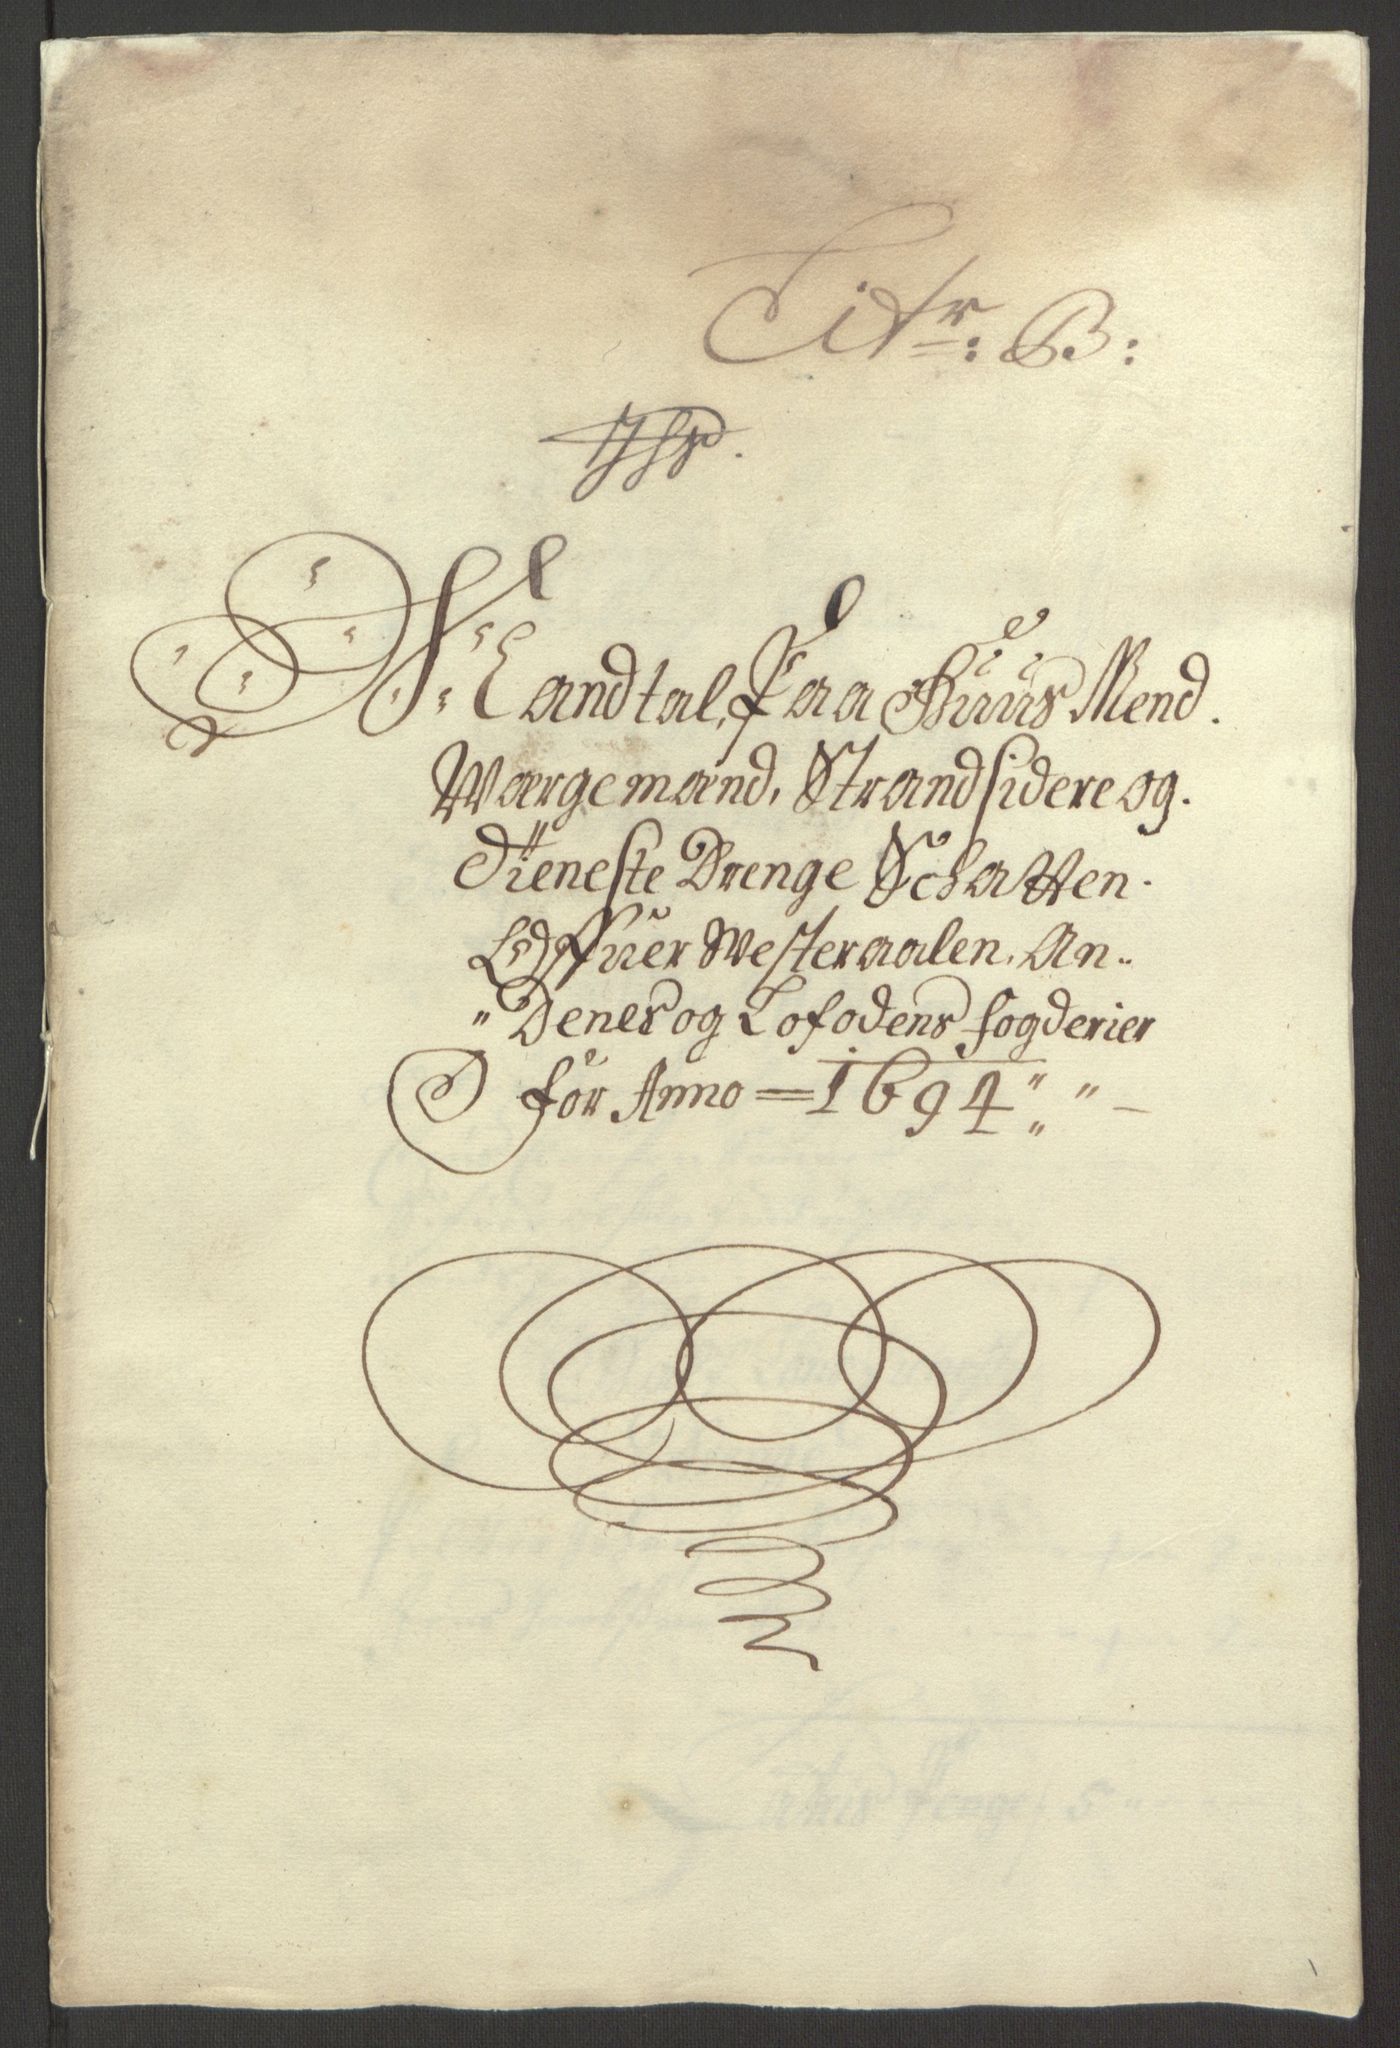 Litr: B:
Mandtal, Paa Huus Mend.
Wærgemænd, Strandsidere og.
Tieneste Drenge Schatten.
Offuer Westeraalen, An„
„Denes og Lofodens fogderier
for Anno = 1694 „ „ –